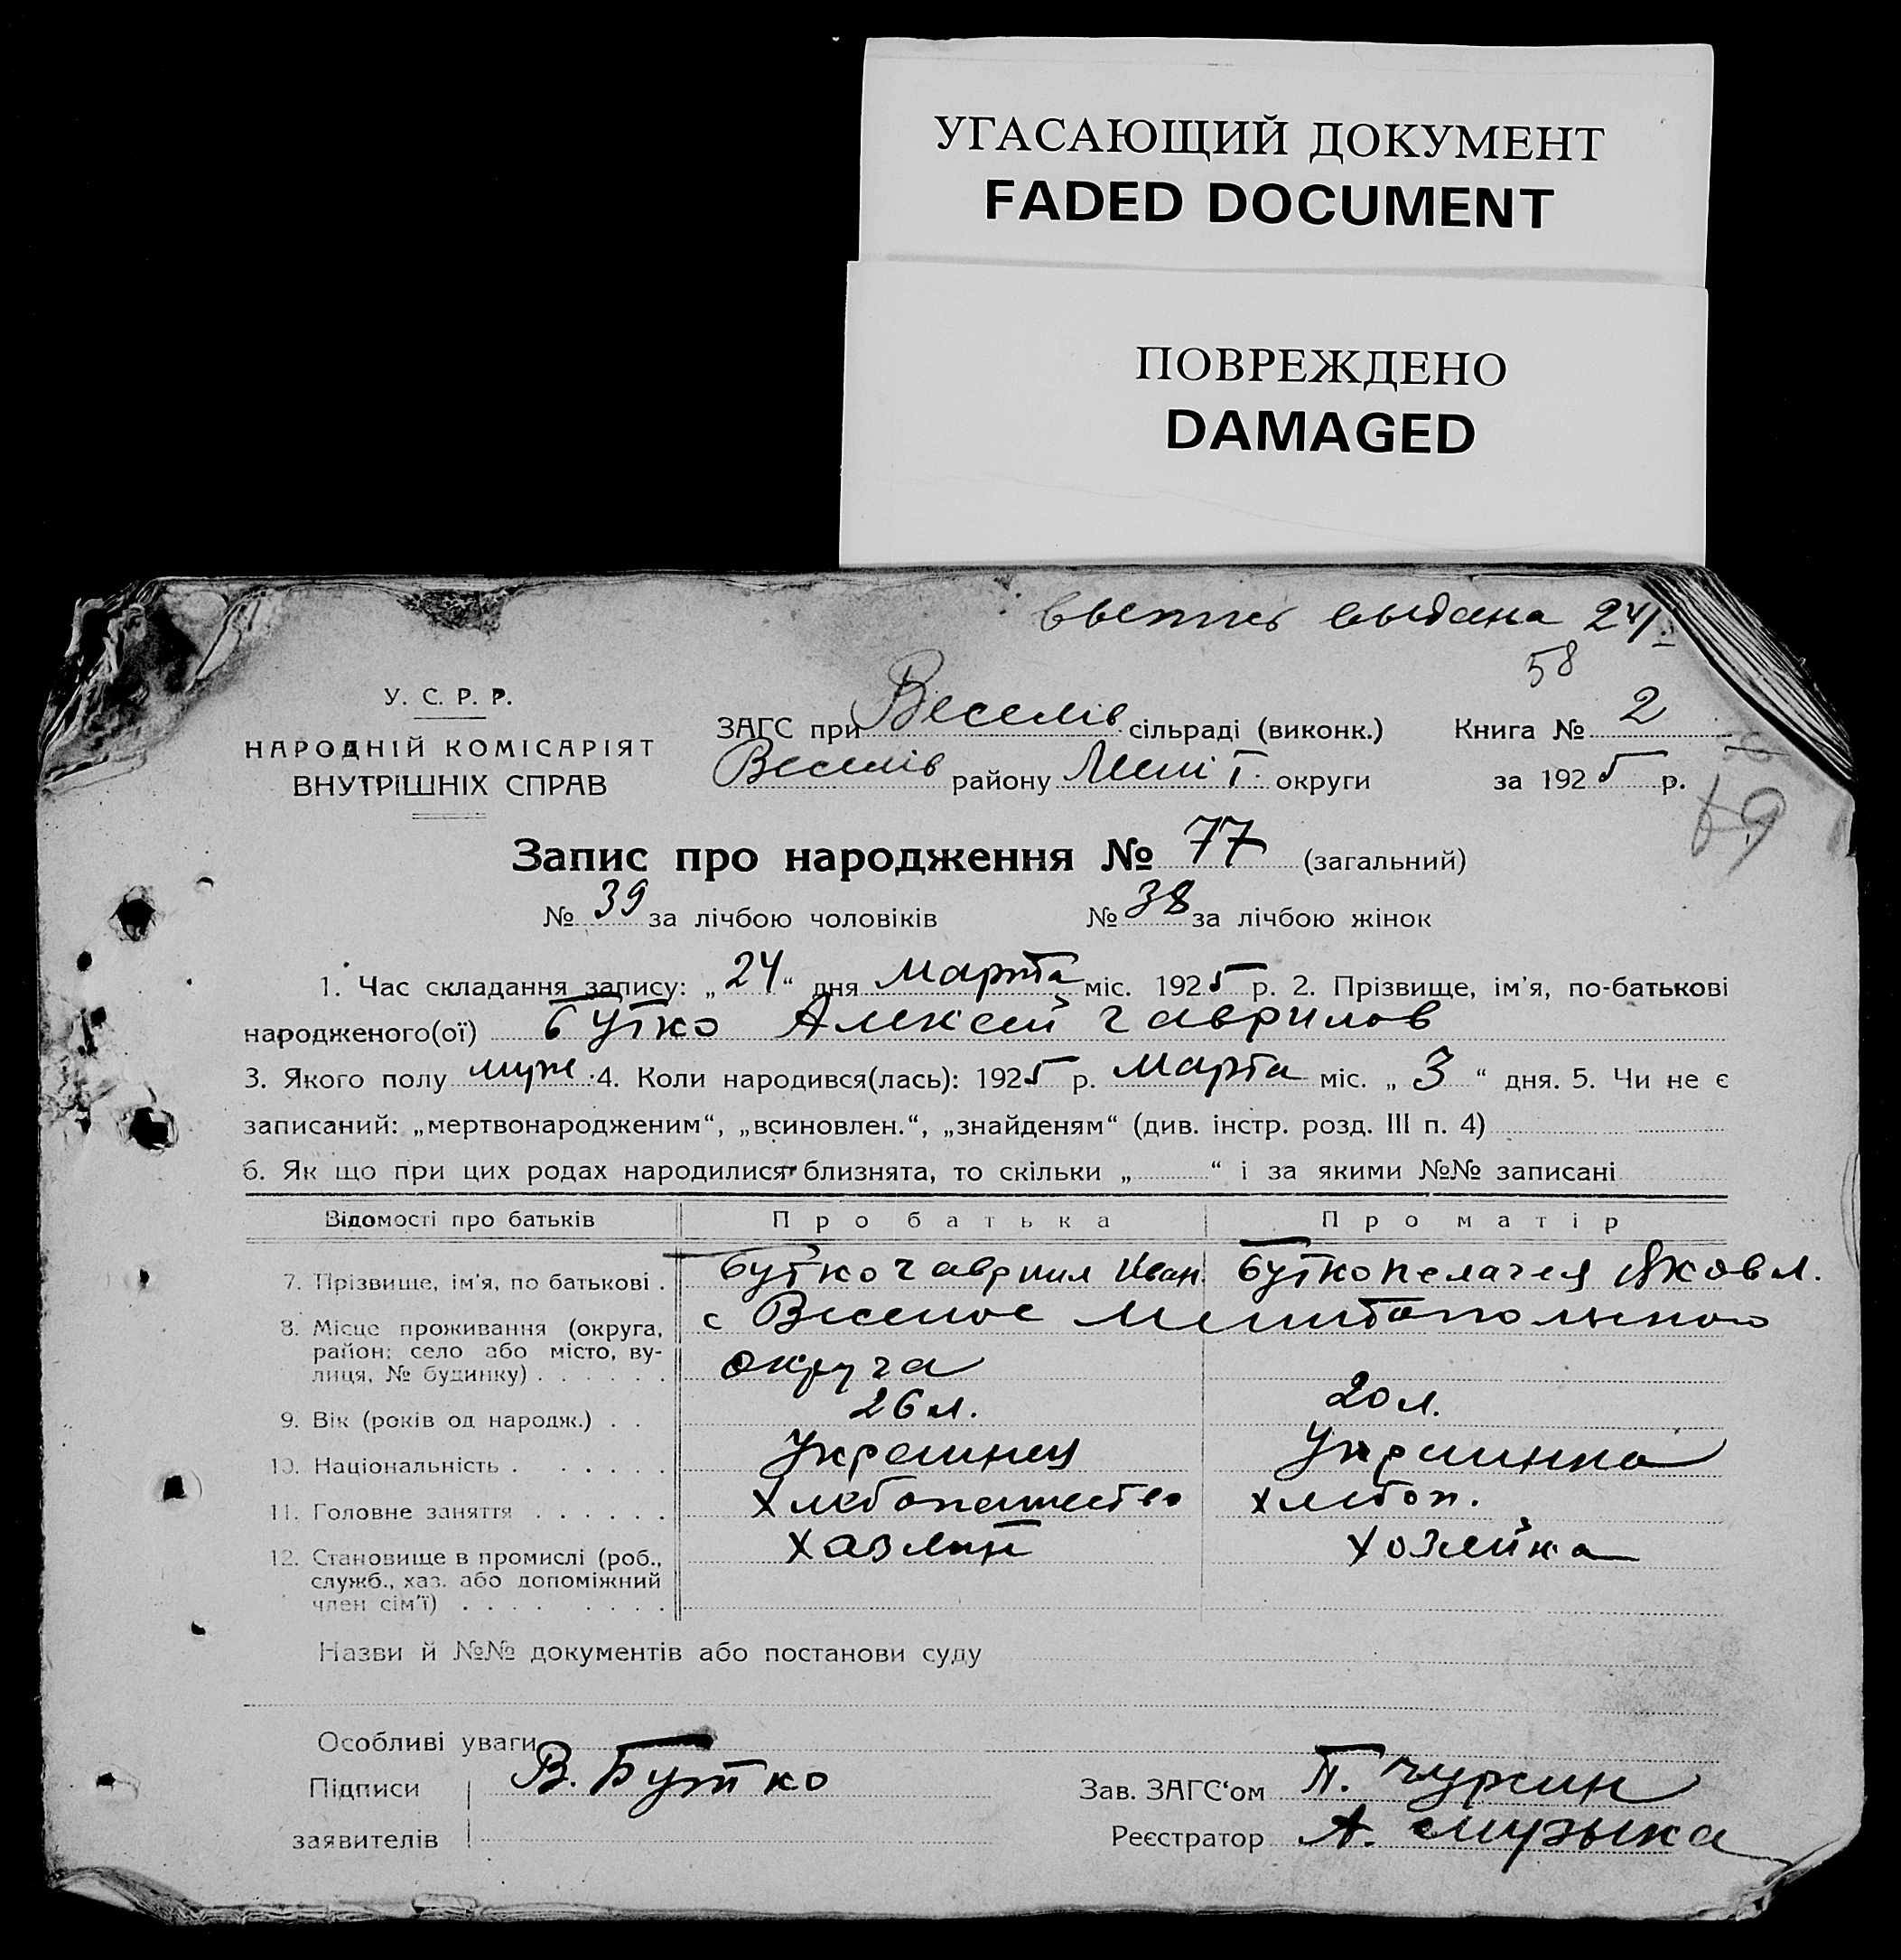 УГАСАЮЩИЙ ДОКУМЕНТ
FADED DOCUMENT
ПОВРЕЖДЕНО
DAMAGED
выпись выдана 24/
58
У. С. Р. Р.
НАРОДНІЙ КОМІСАРІЯТ
ВНУТРІШНІХ СПРАВ
ЗАГС при Веселів сільраді (виконк.) Книга № 2
Веселів району Меліт. округи за 1925 р.
69
Запис про народження № 77 (загальний)
№ 39 за лічбою чоловіків № 38 за лічбою жінок
1. Час складання запису: „24“ дня марта міс. 1925 р. 2. Прізвище, ім'я, по-батькові
народженого(ої) Бутко Алексей Гаврилов
3. Якого полу муж. 4. Коли народився(лась): 1925 р. марта міс. „3“ дня. 5. Чи не є
записаний: „мертвонародженим“, „всиновлен.“, „знайденям“ (див. інстр. розд. III п. 4)
6. Як що при цих родах народилися близнята, то скільки „ “ і за якими №№ записані
Відомості про батьків Про батька Про матір
7. Прізвище, ім'я, по батькові . Бутко Гавриил Иван. Бутко Пелагея Яковл.
8. Місце проживання (округа, с Веселое Мелитопольского
район; село або місто, ву-
лиця, № будинку) . . . . . . округа
9. Вік (років од народж.) . . 26 л. 20 л.
10. Національність . . . . . . Украинец Украинка
11. Головне заняття . . . . . . Хлебопашество хлебоп.
12. Становище в промислі (роб., Хазяин хозяйка
служб., хаз. або допоміжний
член сім'ї) . . . . . . . .
Назви й №№ документів або постанови суду
Особливі уваги
Підписи В. Бутко Зав. ЗАГС'ом П. Чуркин
заявителів Реєстратор А. Музыка